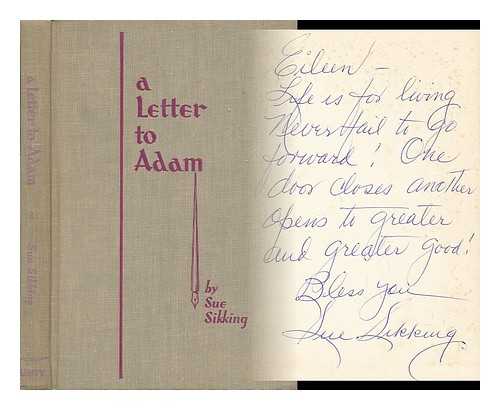 a Letter to Adam
Sue Sikking
UNITY
a
Letter
to
Adam
by
Sue
Sikking
Eileen -
Life is for living
Never fail to go
forward! One
door closes another
opens to greater
and greater good!
Bless you
Sue Sikking